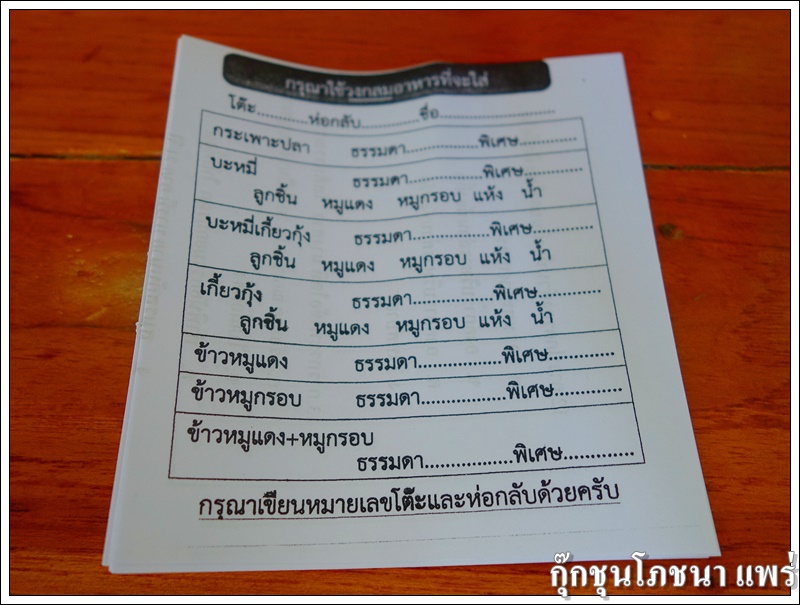 กรุณาใช้วงกลมอาหารที่จะใส่
โต๊ะ............ห่อกลับ..............ชื่อ..........................
กระเพาะปลา ธรรมดา.................พิเศษ.............
บะหมี่ ธรรมดา.................พิเศษ.............
ลูกชิ้น หมูแดง หมูกรอบ แห้ง น้ำ
บะหมี่เกี้ยวกุ้ง ธรรมดา.................พิเศษ.............
ลูกชิ้น หมูแดง หมูกรอบ แห้ง น้ำ
เกี้ยวกุ้ง ธรรมดา.................พิเศษ.............
ลูกชิ้น หมูแดง หมูกรอบ แห้ง น้ำ
ข้าวหมูแดง ธรรมดา.................พิเศษ.............
ข้าวหมูกรอบ ธรรมดา.................พิเศษ.............
ข้าวหมูแดง+หมูกรอบ
ธรรมดา.................พิเศษ.............
กรุณาเขียนหมายเลขโต๊ะและห่อกลับด้วยครับ
กุ๊กชุนโภชนา แพร่